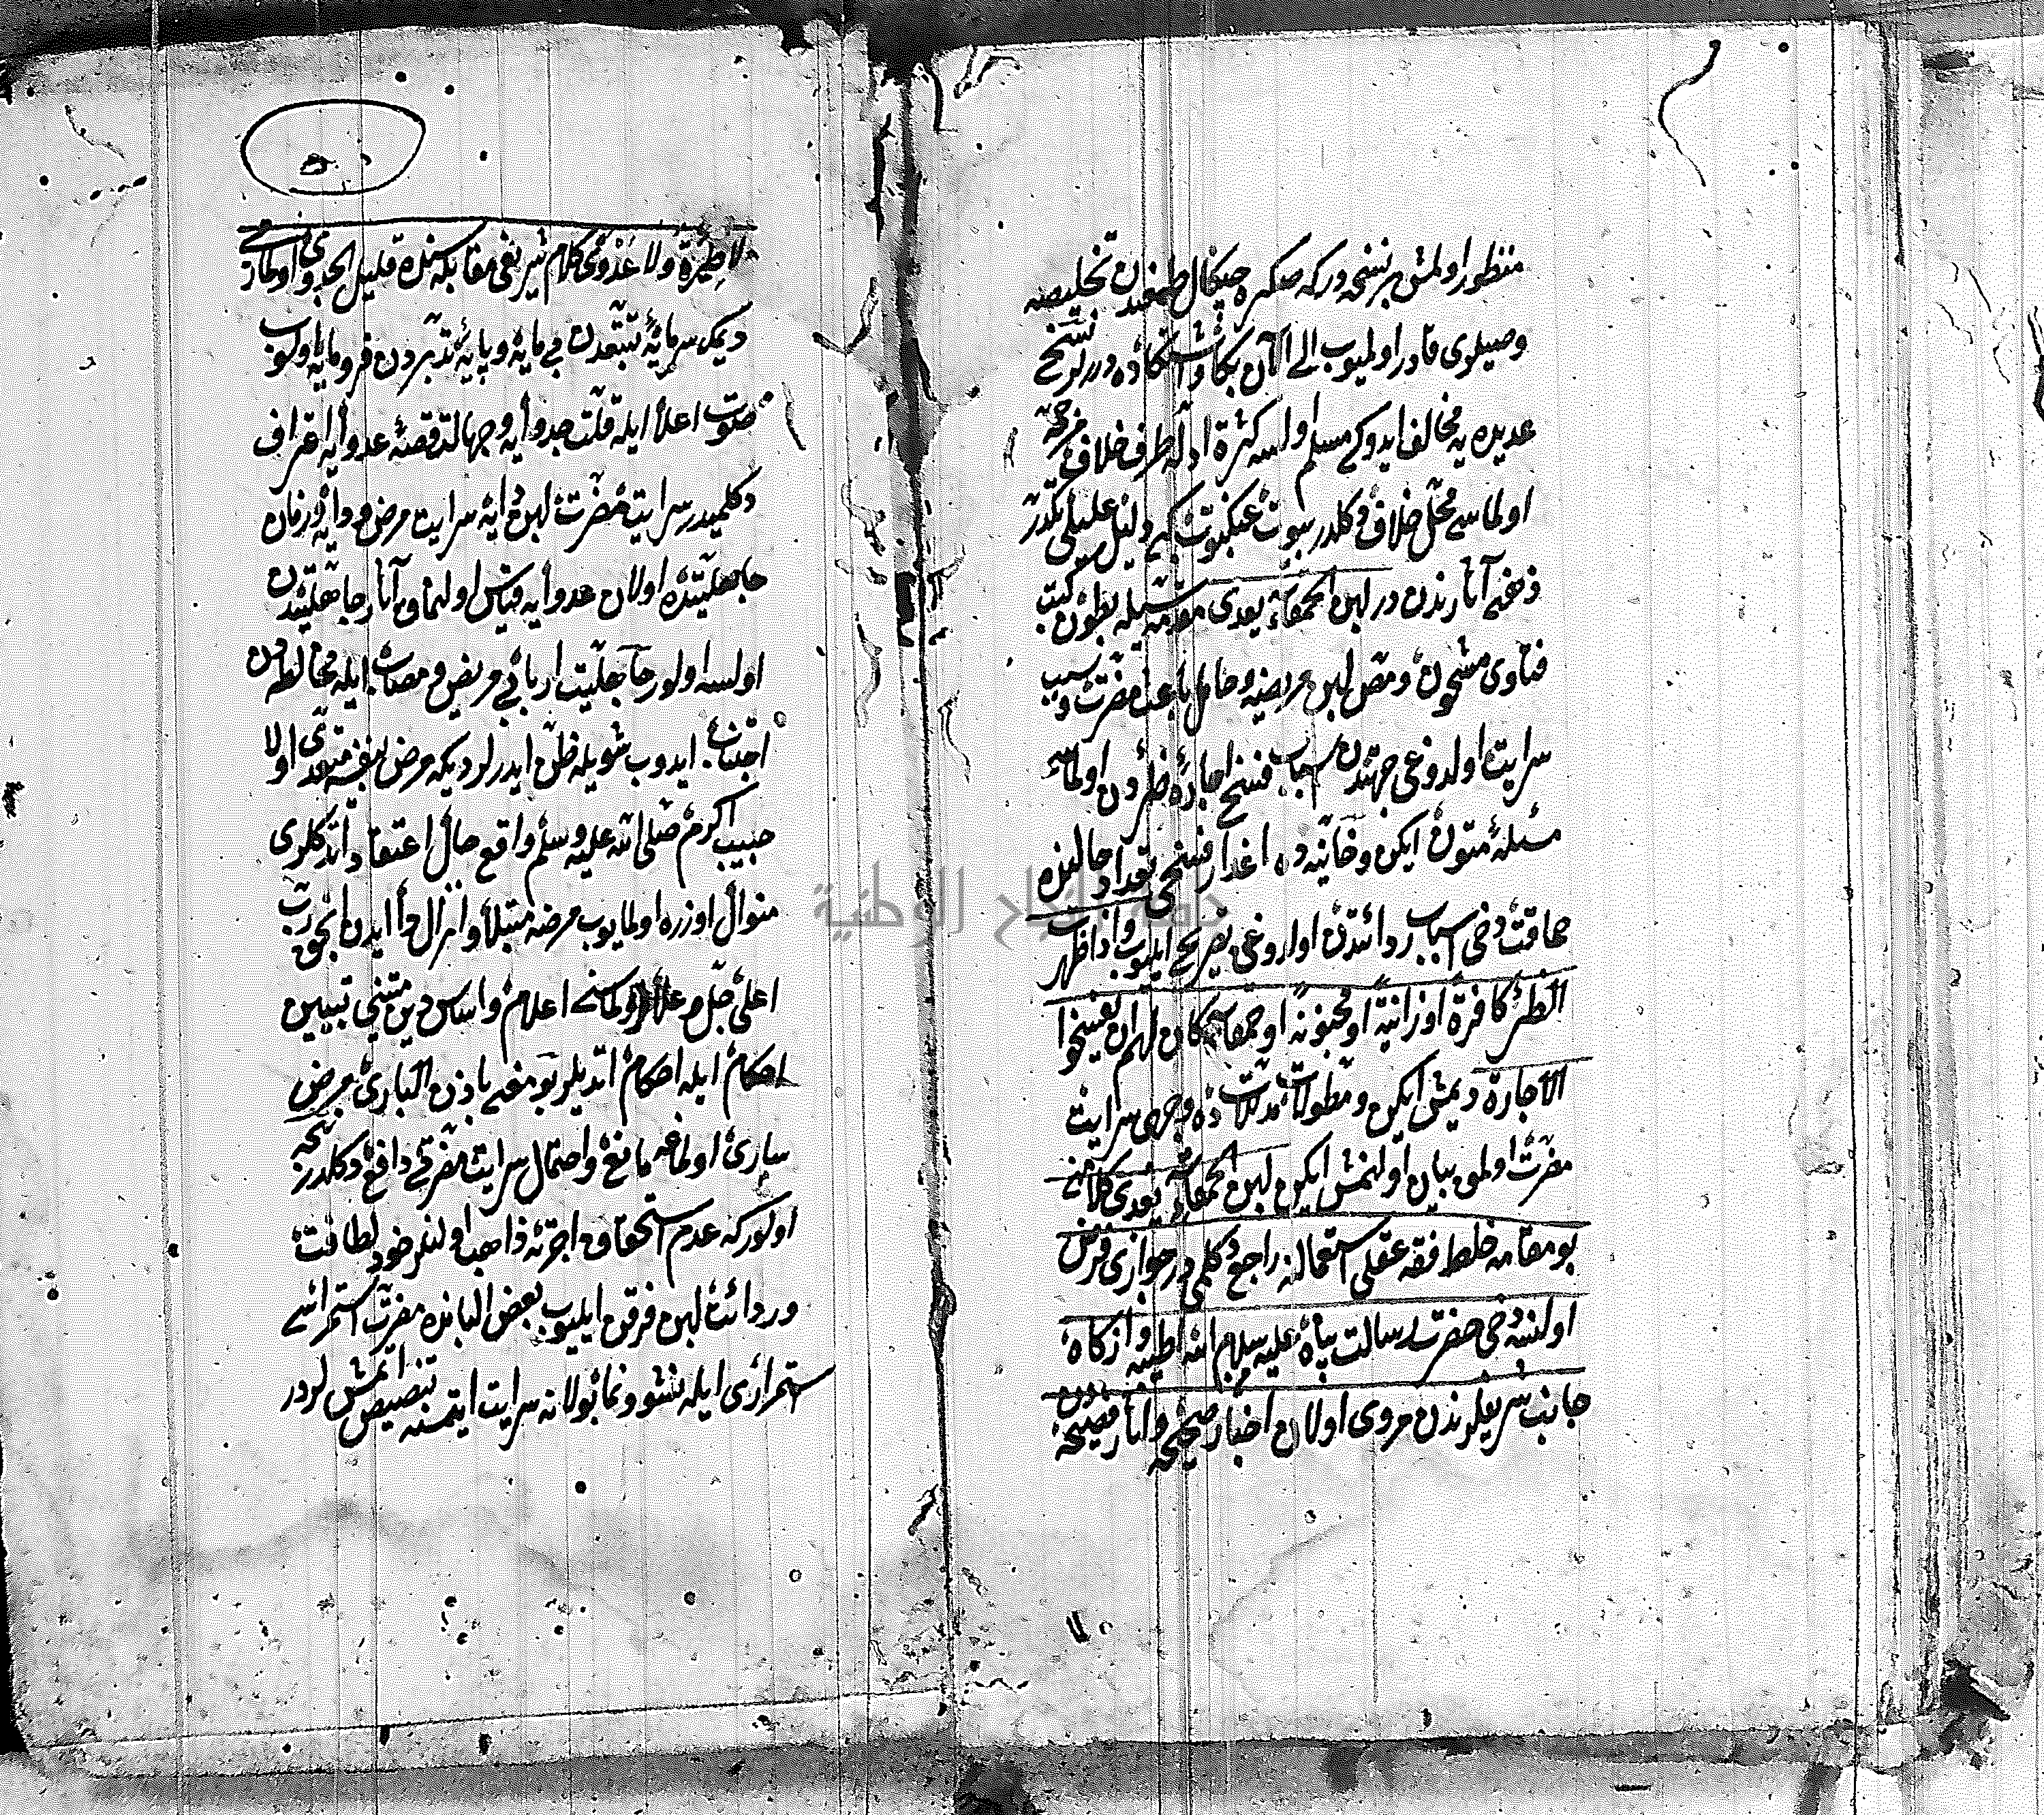 منظور اولمش بر نسخه در که صکره چنکال طمغیدن تخلیصه
وصیلوی قادر اولمیوب الی الآن بکا واستکاده در لر نسخ
عدیده یه مخالف ایدوکی مسلم اولسه کثرة ادله طرف خلاف مرجحه
اولماسی محل خلاف دکلدر بیوت عنکبوت کبی دلیل علیلی تکدر
ذهنی آثارندن در لبن الحمقاء یعدی مقدمه سیله بطون کتب
فتاوی مشحون ومصل لبن مریضه وحامل باعث مضرت وسبب
سرایت اولدوغی جهتدن اسباب فسخ اجارهٔ ظئردن اولماسی
مسئلهٔ متون ایکن وخانیه ده اعذار فسخی تعداد حالنده
حماقت دخی اسباب ردائتدن اولدوغی تصریح ایلیوب واذا ظهر
الظئر کافرة او زانیة او مجنونة او حمقاء کان لهم ان یفسخوا
الاجارة دیمش ایکن ومطولات مدللات ده وجهی سرایت
مضرت اولمق بیان اولنمش ایکن لبن الحمقاء یعدی کلامنی
بو مقامه خلط فقه عقلی استعمالنه راجع دکلمیدر جوازی فرض
اولنسه دخی حضرت رسالت پناه علیه سلام الله اطیبه وازکاه
جانب شریفلرندن مروی اولان اخبار صحیحه وآثار فصیحه دن
لا طیرة ولا عدوی کلام شریفی مقابله سنده قلیل الجدوی اولماز می
دیمک سرمایهٔ تتبعدن بی مایه وپایهٔ تدبردن فرومایه اولوب
صوت اعلا ایله قلت جدوایه وجهالت قصهٔ عدوایه اعتراف
دکلمیدر سرایت مضرت لبن دایه سرایت مرض مردایه وزمان
جاهلیتده اولان عدوایه قیاس اولنماق آثار جاهلیتدن
اولسه اولور جاهلیت اربابی مریض ومصاب ایله مخالطه دن
اجتناب ایدوب شویله ظن ایدرلردیکه مرض بنفسه متعدی اولا
حبیب اکرم صلی الله علیه وسلم واقع حال اعتقاد ایتدکلری
منوال اوزره اولمایوب مرضه مبتلا وانزال دا ایدن انجق رب
اعلی جل وعلا اولماسنی اعلام واساس دین متینی تبیین
احکام ایله احکام ایتدیلر بو معنی باذن الباری مرض
ساری اولماغه مانع واحتمال سرایت مضرتی دافع دکلدر نیجه
اولور که عدم استحقاق اجرته ذاهب اولنلر خود لطافت
وردائت لبن فرقن ایلیوب بعض البانده مضرت استمراسی
استمراری ایله نشو ونما بولانه سرایت ایتمسنه تنصیص ایتمشلردر